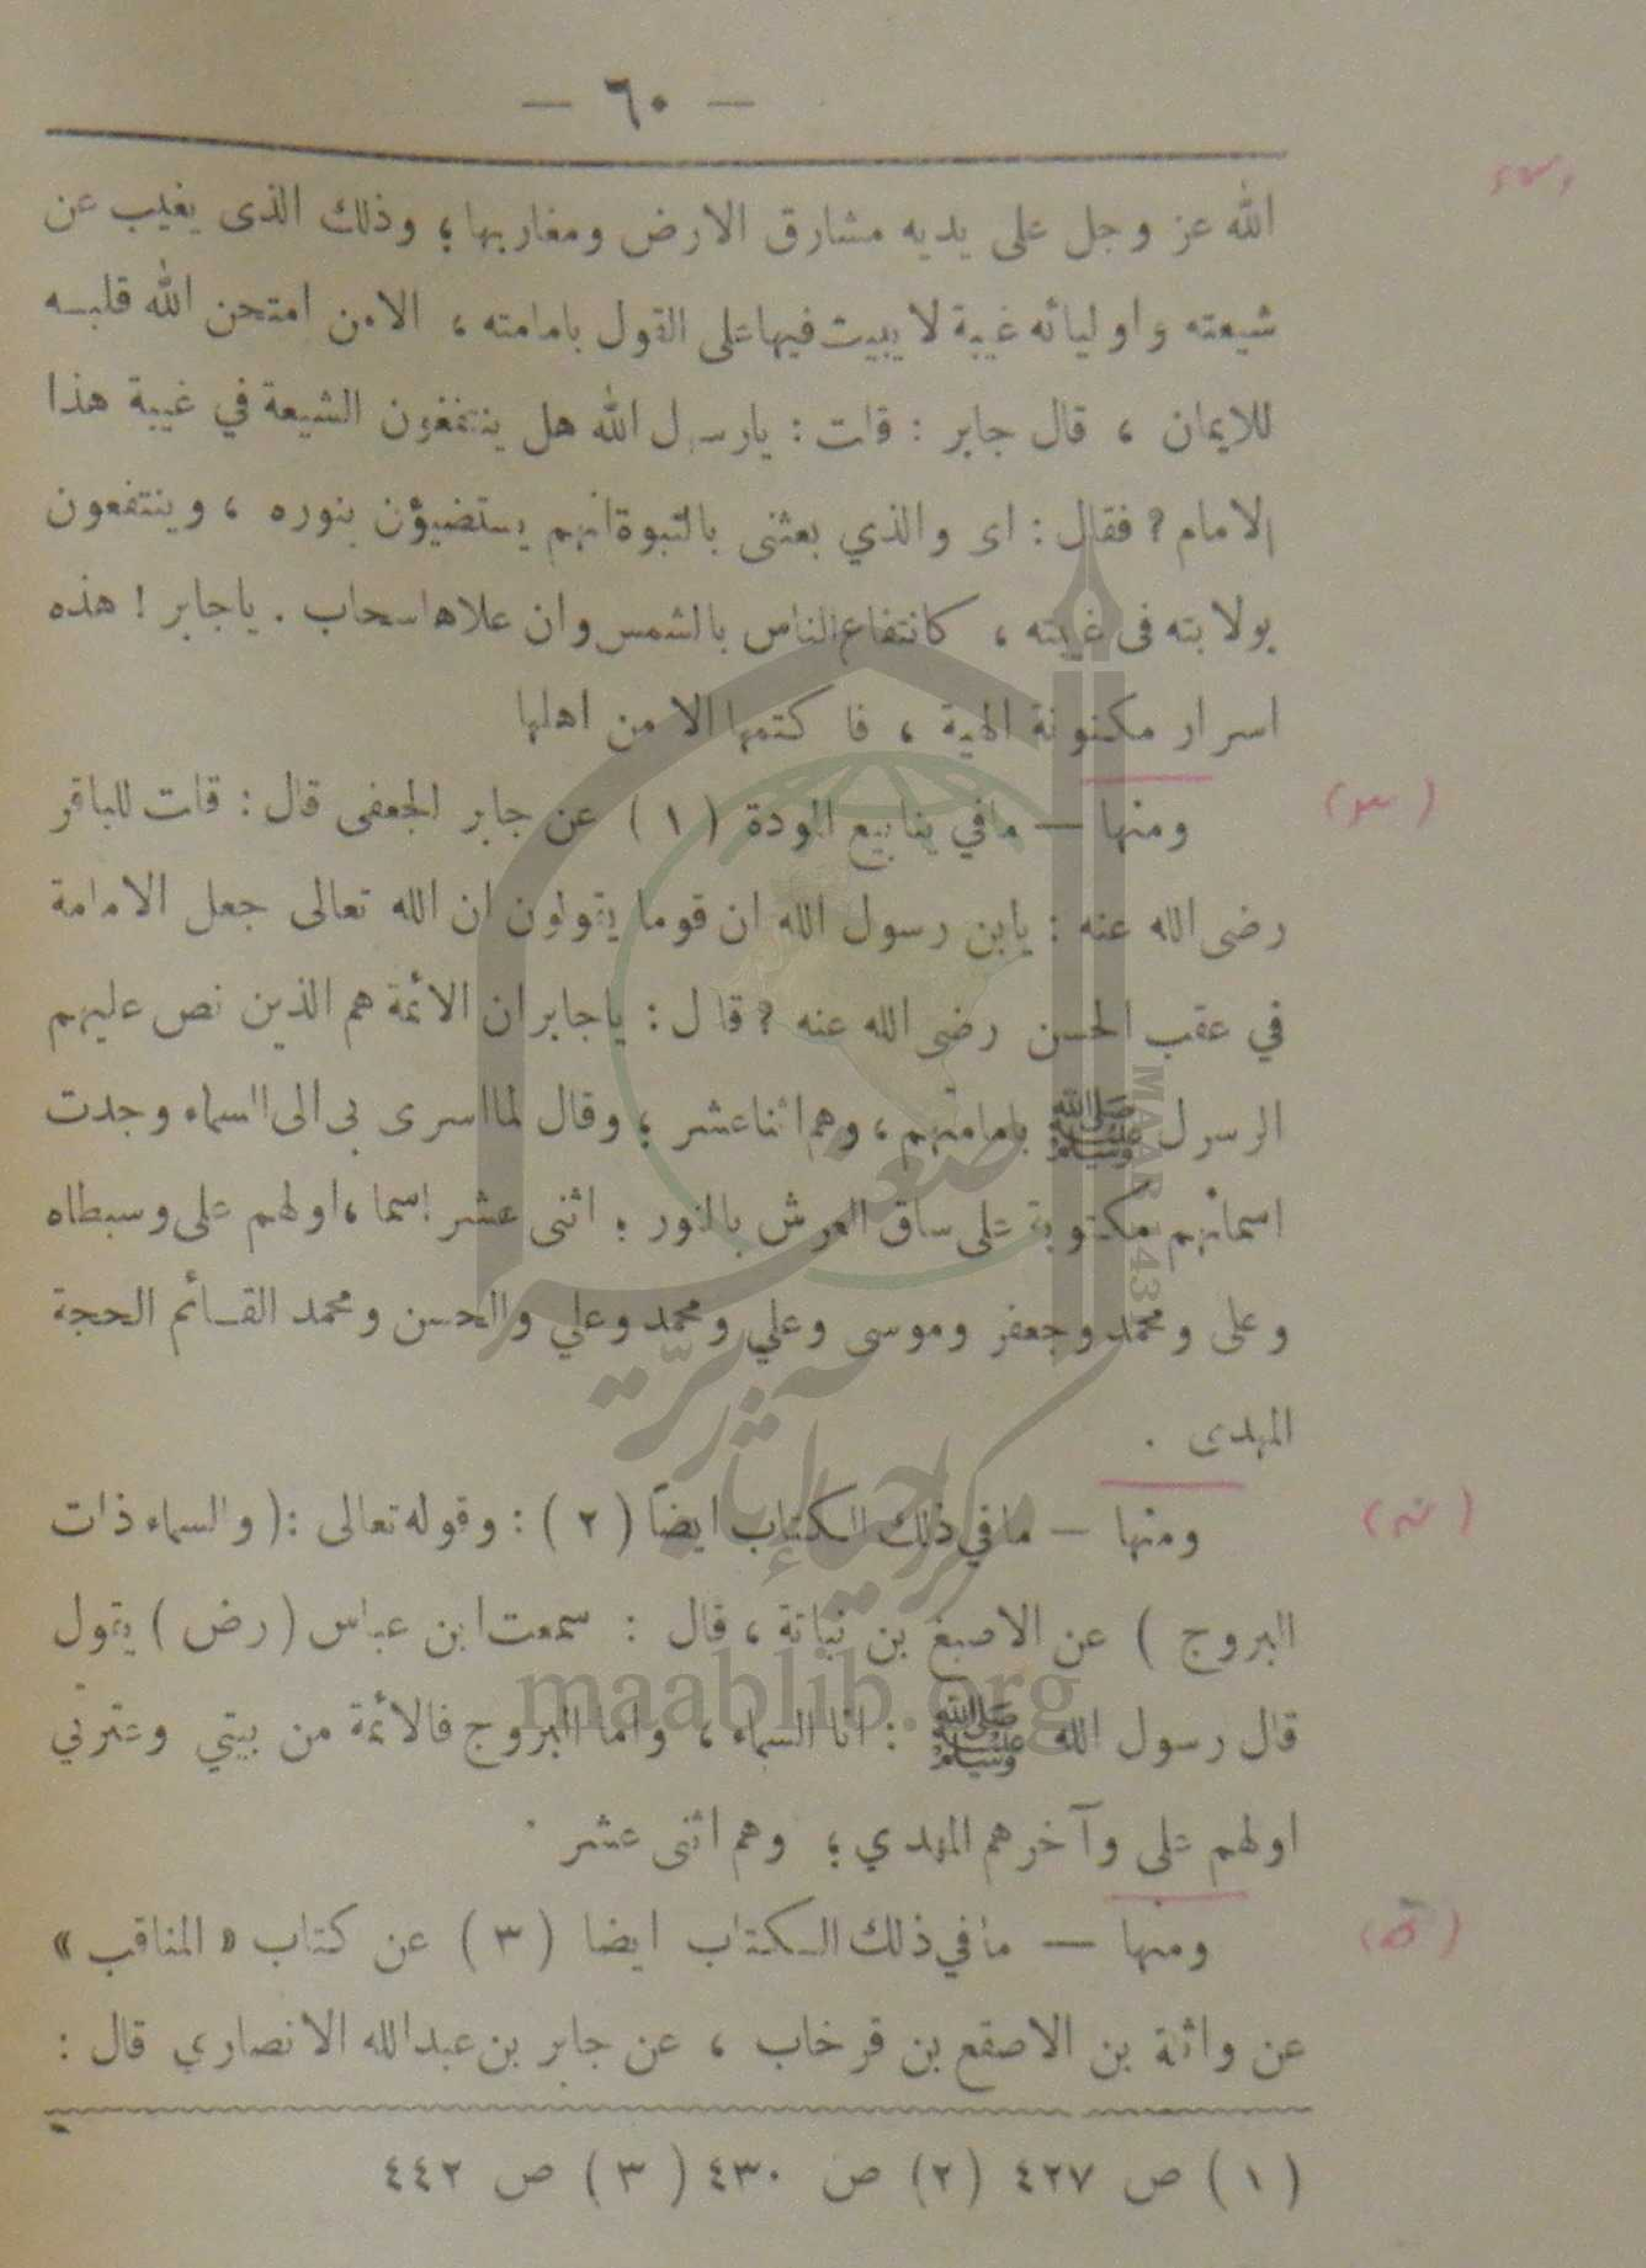 — ٦٠ —
الله عز وجل على يديه مشارق الارض ومغاربها؛ وذلك الذى يغيب عن
شيعته واوليائه غيبة لا يبيت فيها على القول بامامته ، الا من امتحن الله قلبه
للايمان ، قال جابر : قلت : يارسول الله هل ينتفعون الشيعة في غيبة هذا
الامام ? فقال : اى والذي بعثنى بالنبوة انهم يستضيؤن بنوره ، وينتفعون
بولايته فى غيبته ، كانتفاع الناس بالشمس وان علاها سحاب . ياجابر ! هذه
اسرار مكنونة الهية ، فاكتمها الا من اهلها
ومنها — مافي ينابيع المودة ( ١ ) عن جابر الجعفى قال : قلت للباقر
رضى الله عنه : يابن رسول الله ان قوما يقولون ان الله تعالى جعل الامامة
في عقب الحسن رضى الله عنه ? قال : ياجابر ان الائمة هم الذين نص عليهم
الرسول ﷺ بامامتهم ، وهم اثنا عشر ؛ وقال لما اسرى بى الى السماء وجدت
اسمائهم مكتوبة على ساق العرش بالنور ؛ اثنى عشر اسما ، اولهم على وسبطاه
وعلى ومحمد وجعفر وموسى وعلي ومحمد وعلي والحسن ومحمد القائم الحجة
المهدى .
ومنها — مافي ذلك الكتاب ايضاً ( ٢ ) : وقوله تعالى : ( والسماء ذات
البروج ) عن الاصبغ بن نباتة ، قال : سمعت ابن عباس ( رض ) يقول
قال رسول الله ﷺ : انا السماء ، واما البروج فالأئمة من بيتي وعترتي
اولهم على وآخرهم المهدي ؛ وهم اثنى عشر .
ومنها — مافي ذلك الكتاب ايضا ( ٣ ) عن كتاب « المناقب »
عن واثلة بن الاصقع بن قرخاب ، عن جابر بن عبدالله الانصاري قال :
( ١ ) ص ٤٢٧ (٢) ص ٤٣٠ ( ٣ ) ص ٤٤٢
maablib.org